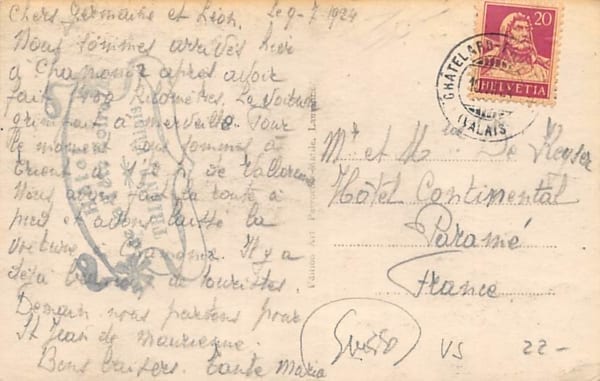 Chers Germaine et Léon. Le 9-7 1924
Nous sommes arrivés hier
à Chamonix après avoir
fait 900 kilomètres. La voiture
grimpait à merveille. Pour
le moment nous sommes à
Trient à de Vallorcine
Nous avons fait la route à
pied et avons laissé la
voiture à Chamonix. Il y a
déjà beaucoup de touristes.
Demain nous partons pour
St Jean de Maurienne.
Bons baisers. Tante Maria
20
HELVETIA
CHÂTELARD
(VALAIS)
Mr et Mme De Keyser
Hôtel Continental
Paramé
France
Edition Art. Lausanne
Suisse
VS 22-